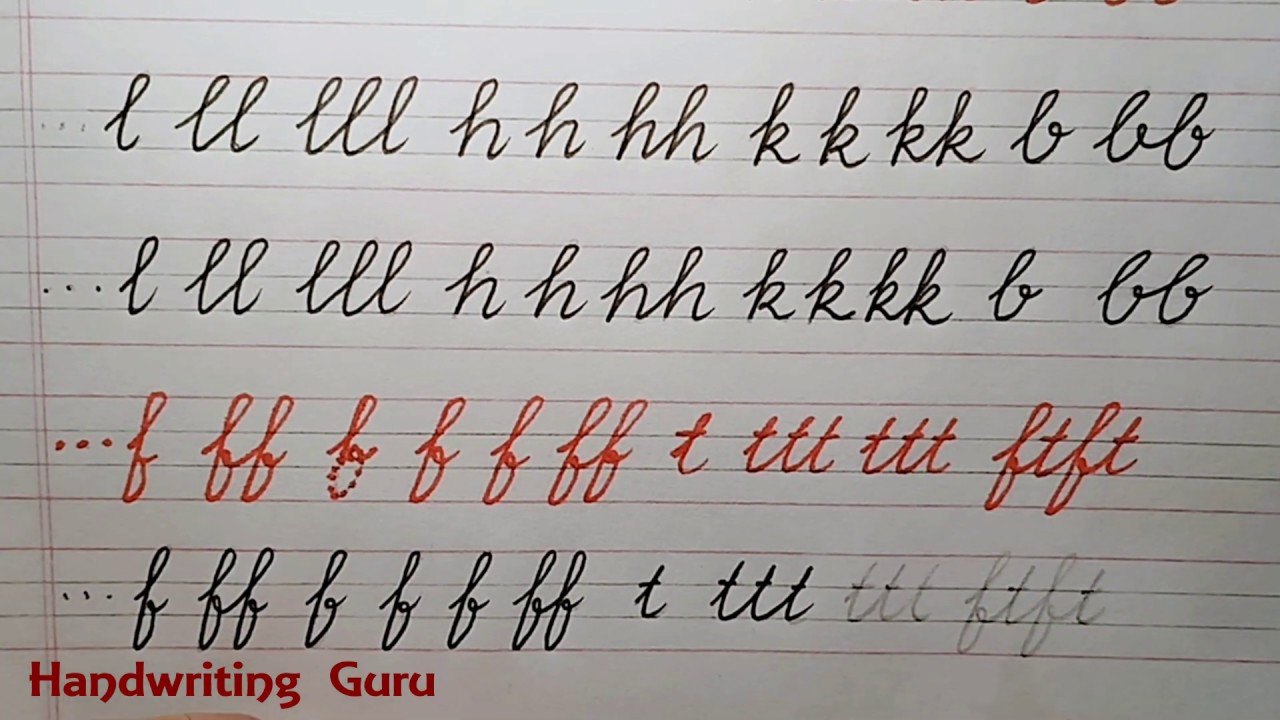 ... l ll lll h h hh k k kk b bb
... l ll lll h h hh k k kk b bb
... f ff f f f ff t ttt ttt ftft
... f ff f f f ff t ttt ttt ftft
Handwriting Guru